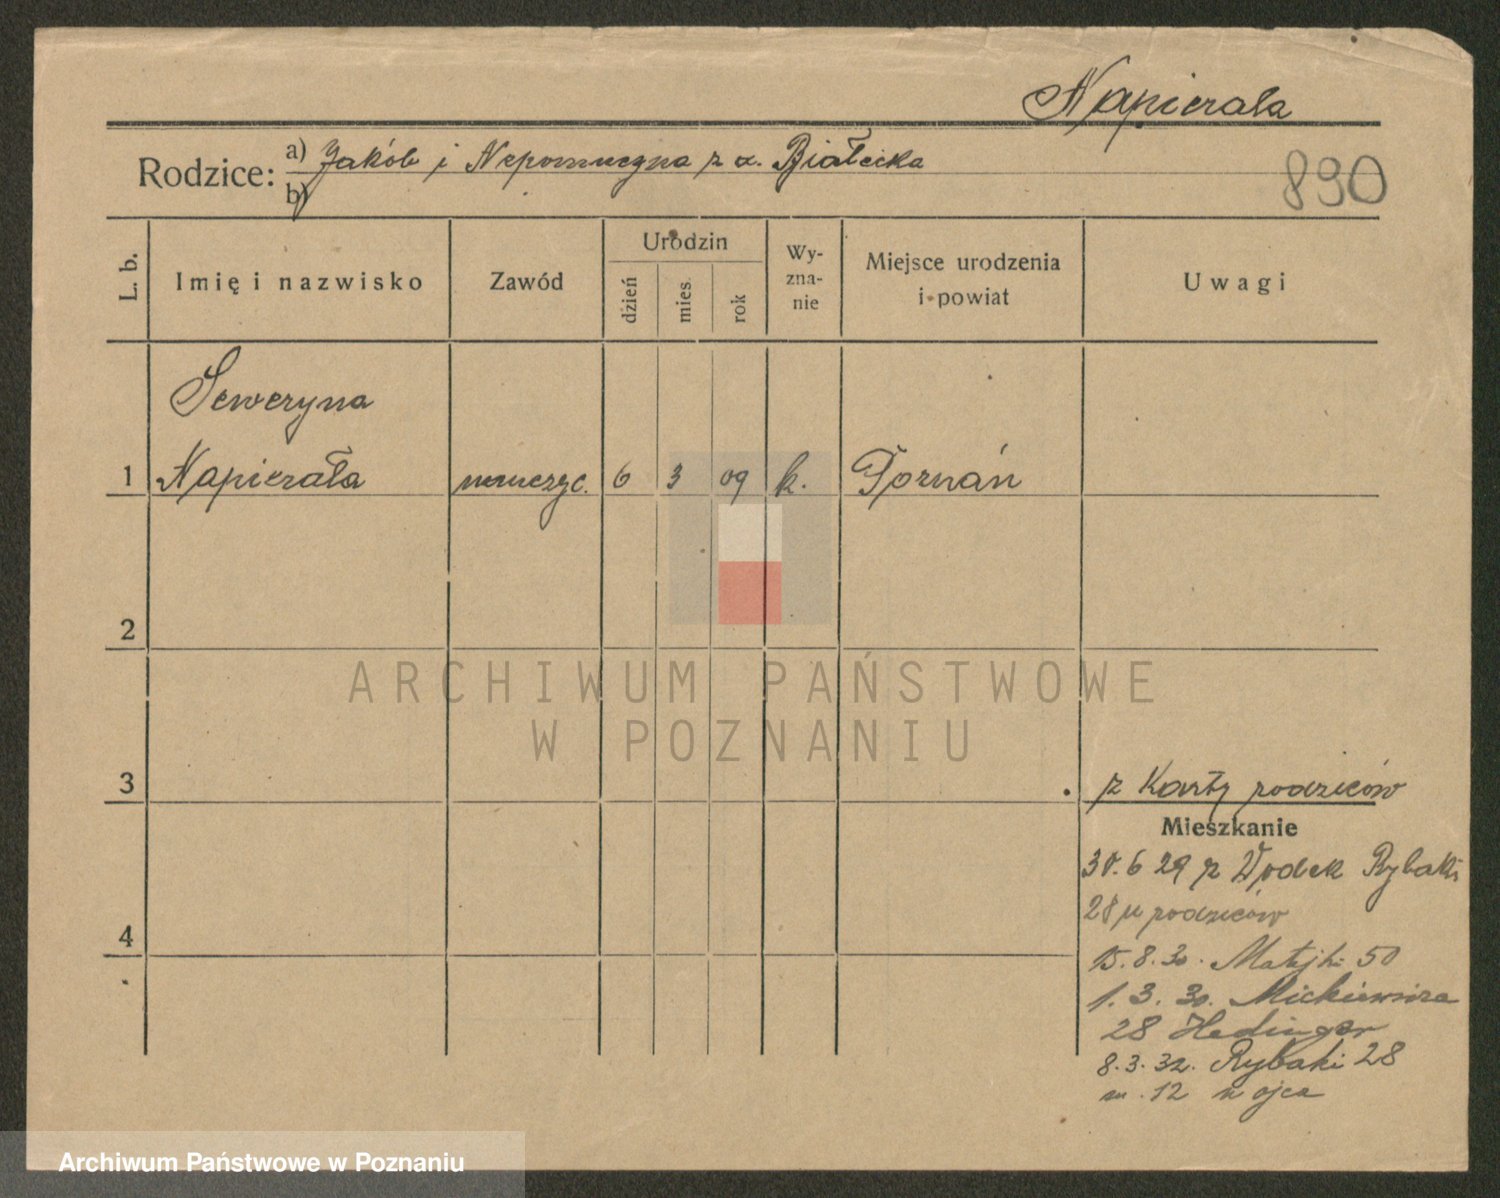 Napierała
Rodzice: a) Jakób i Nepomucyna z d. Białecka
b)
890
L. b.
Imię i nazwisko
Zawód
Urodzin
dzień
mies.
rok
Wy-
zna-
nie
Miejsce urodzenia
i powiat
Uwagi
Seweryna
1 Napierała nauczyc. 6 3 09 k. Poznań
2
ARCHIWUM PAŃSTWOWE
W POZNANIU
3
z Karty rodziców
Mieszkanie
30.6 29 z Rybaki
28 u rodziców
4
15.8.30. Matejki 50
1.3.30. Mickiewicza
28 Hedinger
8.3.32. Rybaki 28
m. 12 u ojca
Archiwum Państwowe w Poznaniu